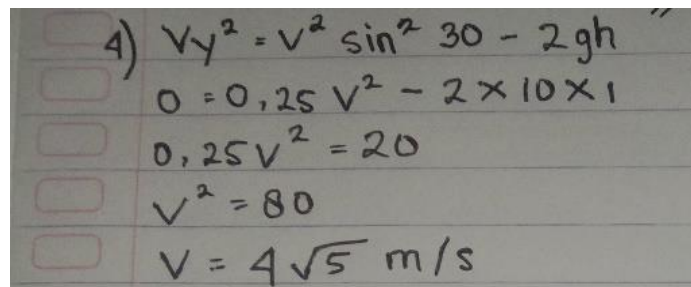 4) Vy² = V² sin² 30 - 2gh
0 = 0,25 V² - 2 × 10 × 1
0,25V² = 20
V² = 80
V = 4√5 m/s